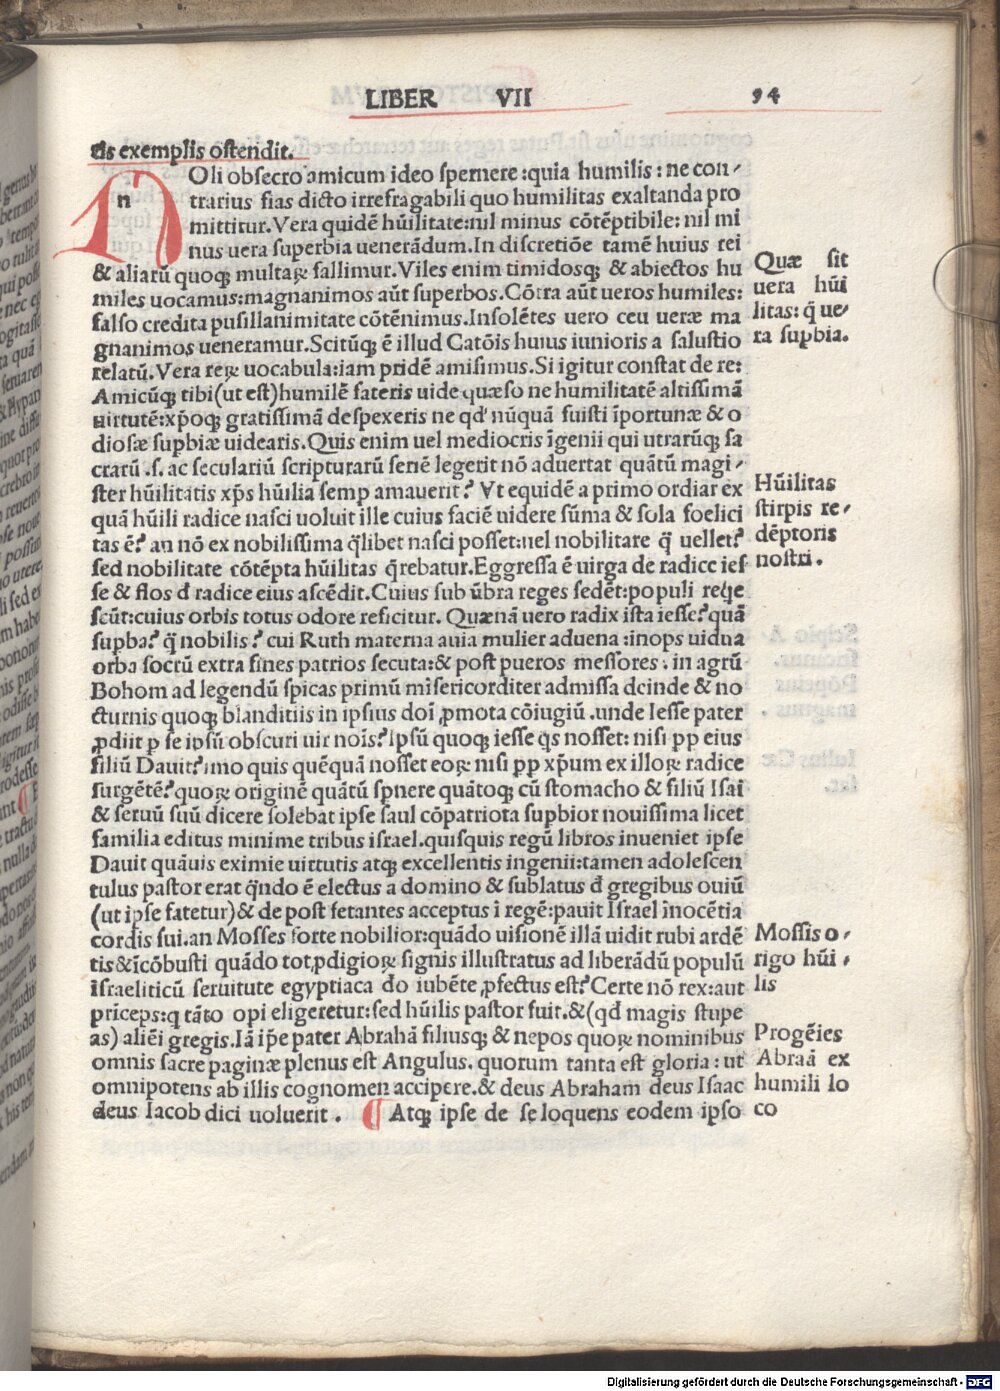 LIBER VII 94
tis exemplis ostendit.
NOli obsecro amicum ideo spernere :quia humilis : ne con-
trarius fias dicto irrefragabili quo humilitas exaltanda pro
mittitur.Vera quidē hūilitate:nil minus cōtēptibile: nil mi
nus uera superbia uenerādum.In discretiōe tamē huius rei
& aliarū quoqꝫ multaꝝ fallimur.Viles enim timidosqꝫ & abiectos hu
miles uocamus:magnanimos aūt superbos.Cōtra aūt ueros humiles:
falso credita pusillanimitate cōtēnimus.Insolētes uero ceu ueræ ma
gnanimos ueneramur.Scitūqꝫ ē illud Catōis huius iunioris a salustio
relatū.Vera reꝝ uocabula:iam pridē amisimus.Si igitur constat de re:
Amicūqꝫ tibi(ut est)humilē fateris uide quæso ne humilitatē altissimā
uirtutē:xp̄oqꝫ gratissimā despexeris ne qd' nūquā fuisti īportunæ & o
diosæ supbiæ uidearis.Quis enim uel mediocris īgenii qui utrarūqꝫ sa
crarū .s. ac seculariū scripturarū seriē legerit nō aduertat quātū magi-
ster hūilitatis xp̄s hūilia semp amauerit? Vt equidē a primo ordiar ex
quā hūili radice nasci uoluit ille cuius faciē uidere sūma & sola foelici
tas ē? an nō ex nobilissima q̄libet nasci posset:uel nobilitare q̄ uellet?
sed nobilitate cōtēpta hūilitas q̄rebatur.Eggressa ē uirga de radice ies
se & flos đ radice eius ascēdit.Cuius sub ūbra reges sedēt:populi reqe
scūt:cuius orbis totus odore reficitur. Quænā uero radix ista iesse?quā
supba? q̄ nobilis? cui Ruth materna auia mulier aduena :inops uidua
orba socrū extra fines patrios secuta:& post pueros messores . in agrū
Bohom ad legendū spicas primū misericorditer admissa deinde & no
cturnis quoqꝫ blanditiis in ipsius doī ꝓmota cōiugiū .unde Iesse pater
ꝓdiit p se ipsū obscuri uir noīs?ipsū quoqꝫ iesse qs nosset: nisi pp eius
filiū Dauit?imo quis quēquā nosset eoꝝ nisi pp xp̄um ex illoꝝ radice
surgētē?quoꝝ originē quātū spnere quātoqꝫ cū stomacho & filiū Isai
& seruū suū dicere solebat ipse saul cōpatriota supbior nouissima licet
familia editus minime tribus israel.quisquis regū libros inueniet ipse
Dauit quāuis eximie uirtutis atqꝫ excellentis ingenii:tamen adolescen
tulus pastor erat q̄ndo ē electus a domino & sublatus đ gregibus ouiū
(ut ipse fatetur)& de post fetantes acceptus ī regē:pauit Israel īnocētia
cordis sui.an Mosses forte nobilior:quādo uisionē illā uidit rubi ardē
tis&īcōbusti quādo tot,ꝓdigioꝝ signis illustratus ad liberādū populū
israeliticū seruitute egyptiaca do iubēte ꝓfectus est? Certe nō rex:aut
prīceps:q tāto opi eligeretur:sed hūilis pastor fuit.&(qđ magis stupe
as) aliēi gregis.Iā ip̄e pater Abrahā filiusqꝫ & nepos quoꝝ nominibus
omnis sacre paginæ plenus est Angulus. quorum tanta est gloria : ut
omnipotens ab illis cognomen accipere.& deus Abraham deus Isaac
deus Iacob dici uoluerit . ¶ Atqꝫ ipse de se loquens eodem ipso
Quæ sit
uera hūi
litas: q̄ ue-
ra supbia.
Hūilitas
stirpis re-
dēptoris
nostri .
Mossis o-
rigo hūi -
lis
Progēies
Abraā ex
humili lo
co
Digitalisierung gefördert durch die Deutsche Forschungsgemeinschaft - DFG